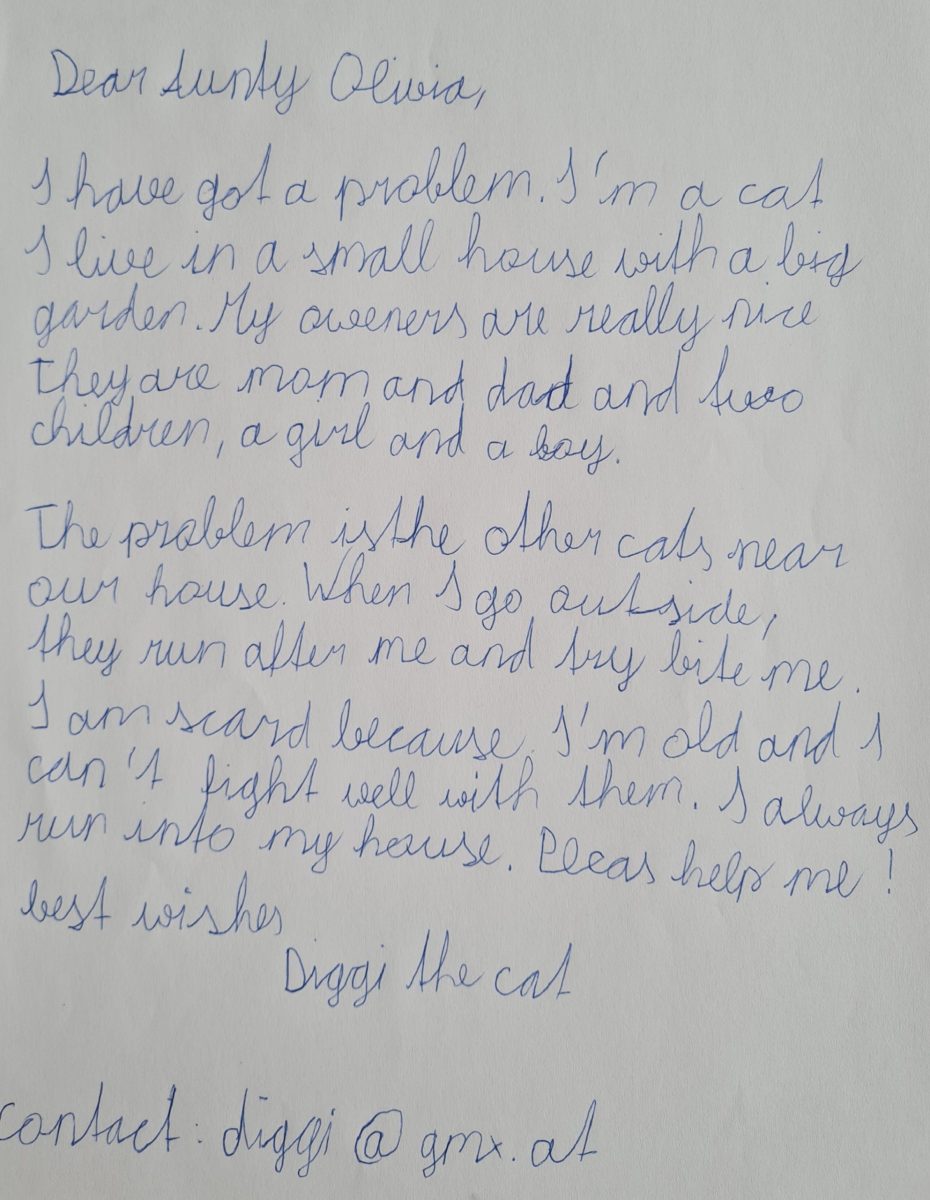 Dear Aunty Olivia,
I have got a problem. I'm a cat
I live in a small house with a big
garden. My oweners are really nice
they are mom and dad and two
children, a girl and a boy.
The problem is the other cats near
our house. When I go outside,
they run after me and try bite me.
I am scard because I'm old and I
can't fight well with them. I always
run into my house. Pleas help me!
best wishes
Diggi the cat
contact: diggi@gmx.at